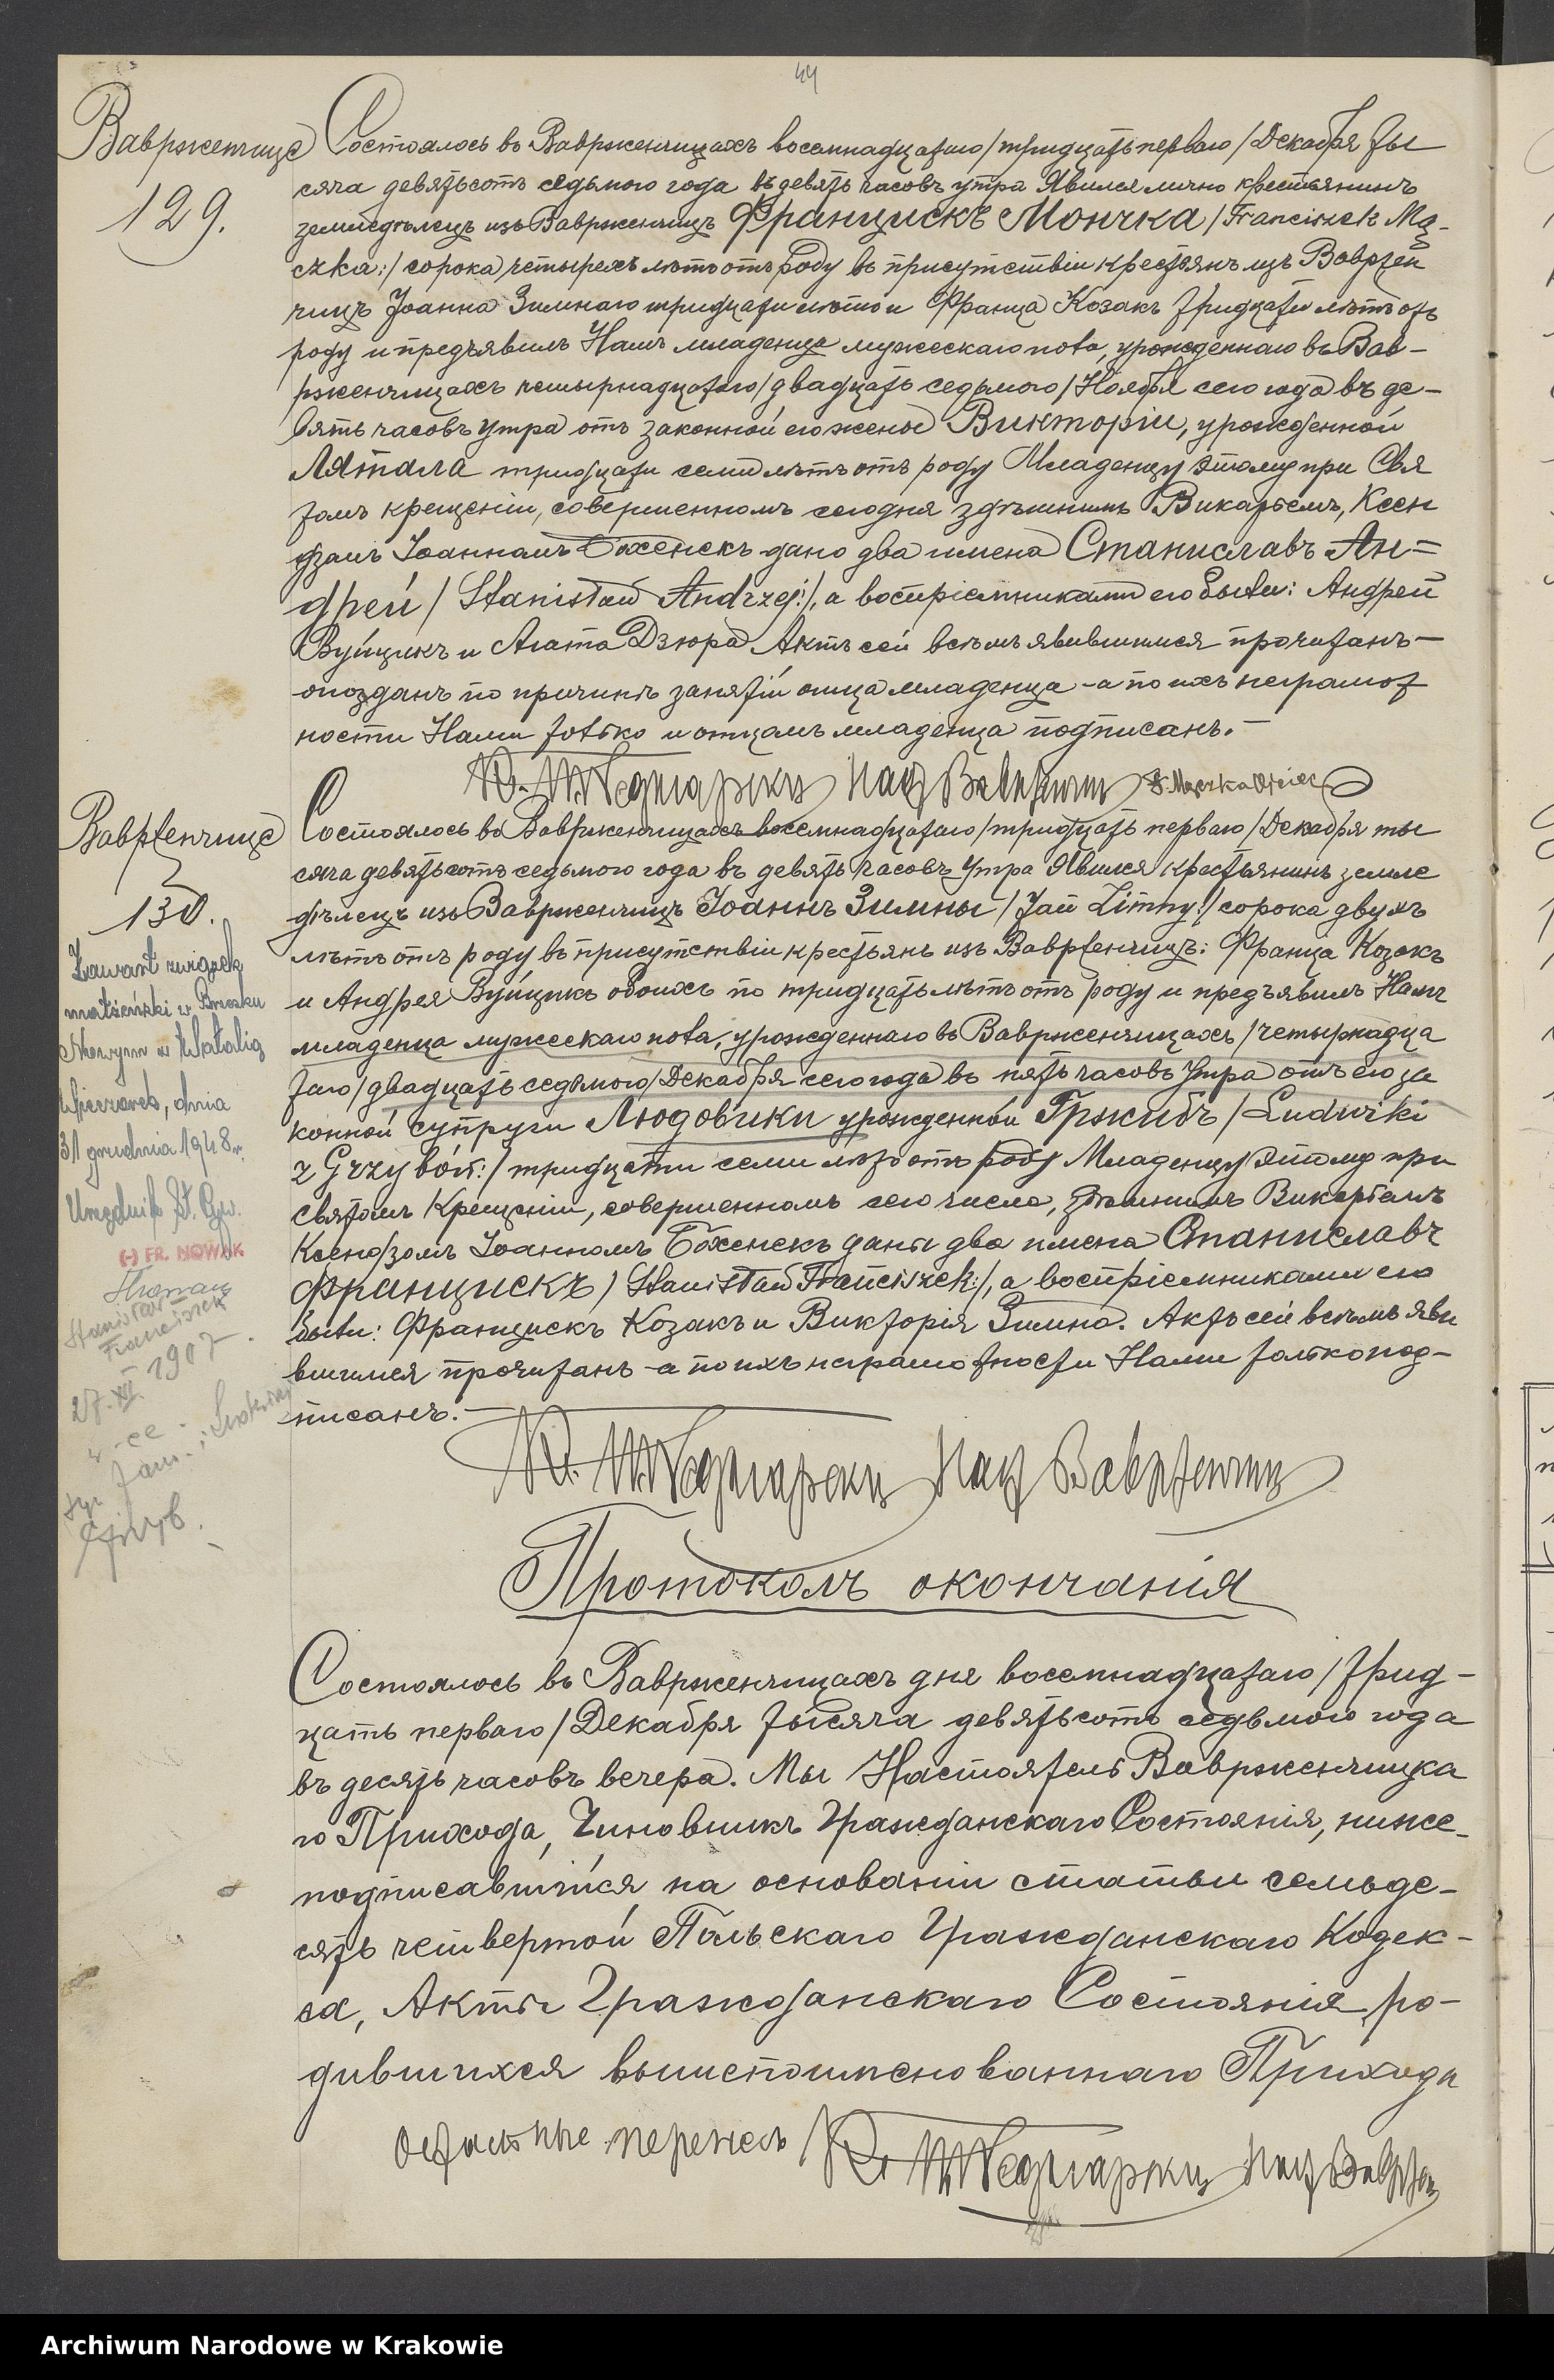 44
Вавржеичице
129.
Состоялось въ Вавржеичицахъ восемнадцатаго /тридцать перваго/ Декабря ты
сяча девятьсотъ седьмого года въ девять часовъ утра Явился лично крестьянинъ
земледѣлецъ изъ Вавржеичицъ Францискъ Мончка /Franciszek Mą-
czka:/ сорока четырехъ лѣтъ отъ роду въ присутствіи крестьянъ изъ Вавржен
чицъ Іоанна Зимнаго тридцати лѣтъ и Франца Козакъ тридцати лѣтъ отъ
роду и предъявилъ Намъ младенца мужескаго пола, урожденнаго въ Вав-
рженчицахъ четырнадцатаго /двадцать седьмого/ Ноября сего года въ де-
вять часовъ утра отъ законной его жены Викторіи, урожденной
Лятала тридцати семи лѣтъ отъ роду Младенцу этому при Свя
томъ крещеніи, совершенномъ сегодня здѣшнимъ Викарьемъ, Ксен
дзомъ Іоанномъ Бохенекъ дано два имена Станиславъ Ан=
дрей / Stanisław Andrzej:/, а воспріемниками его были: Андрей
Вуйцикъ и Агата Дзюра Актъ сей всѣмъ явившимся прочитанъ-
опозданъ по причинѣ занятій отца младенца - а по ихъ неграмот
ности Нами только и отцомъ младенца подписанъ.-
Кс. Наст Вавржен F. Mączka Ojciec
Ваврженчице
130.
Состоялось въ Вавржеичицахъ восемнадцатаго /тридцать перваго/ Декабря ты
сяча девятьсотъ седьмого года въ девять часовъ утра Явился крестьянинъ земле
дѣлецъ изъ Вавржеичицъ Іоаннъ Зимны / Jan Zimny:/ сорока двухъ
лѣтъ отъ роду въ присутствіи крестьянъ изъ Ваврженчицъ: Франца Козакъ
и Андрея Вуйцикъ обоихъ по тридцать лѣтъ отъ роду и предъявилъ Намъ
младенца мужескаго пола, урожденнаго въ Вавржеичицахъ /четырнадца
таго /двадцать седьмого/ Декабря сего года въ пять часовъ утра отъ его за
конной супруги Людовики урожденной Гржибъ / Ludwiki
z Grzybów:/ тридцати семи лѣтъ отъ роду Младенцу этому при
святомъ Крещеніи, совершенномъ сего числа, здѣшнимъ Викарьемъ
Ксендзомъ Іоанномъ Бохенекъ даны два имена Станиславъ
Францискъ / Stanisław Franciszek:/, а воспріемниками его
были: Францискъ Козакъ и Викторія Зимна. Актъ сей всѣмъ яви
вшимся прочитанъ - а по ихъ неграмотности Нами только под-
писанъ.-
Кс. Наст Вавржен
Zawarł związek
małżeński w Brzesku
Nowym z Natalią
Wieczorek, dnia
31 grudnia 1948 r.
Urzędnik St. Cyw.
(-) FR. NOWAK
Stanisław
Franciszek
27.XII 1907.
Grzyb.
Протоколъ окончанія
Состоялось въ Вавржеичицахъ дня восемнадцатаго /трид-
цать перваго/ Декабря тысяча девятьсотъ седьмого года
въ десять часовъ вечера. Мы Настоятель Вавржеичицка
го Прихода, Чиновникъ Гражданскаго Состоянія, ниже-
подписавшійся на основаніи статьи семьде-
сять четвертой Польскаго Гражданскаго Кодек-
са, Акты Гражданскаго Состоянія ро-
дившихся вышепоименованнаго Прихода
Кс. Наст Вавржен
Archiwum Narodowe w Krakowie